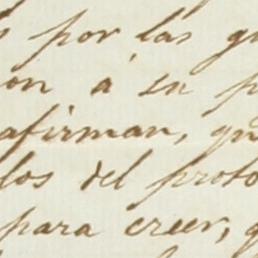 s por las qu
on á su p
afirman, qu
los del proto
para creer, q